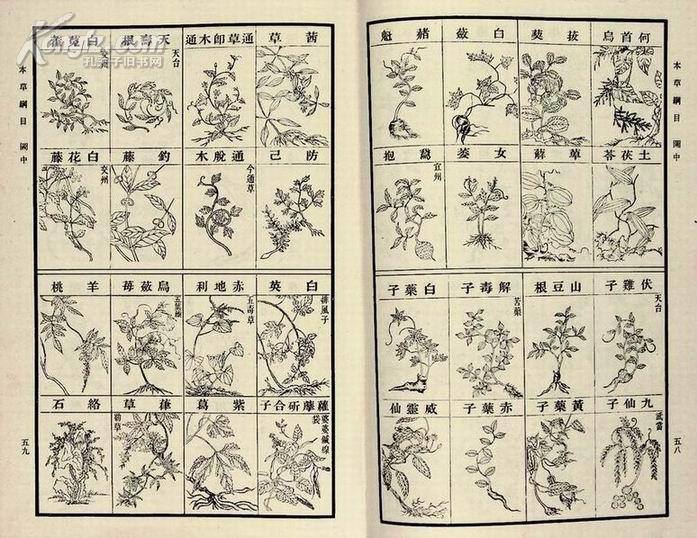 本草綱目 圖中
五八
何首烏
菝葜
白蘞
赭魁
土茯苓
萆薢
女萎
鵞抱
宜州
伏雞子
天台
山豆根
解毒子
苦藥
白藥子
九仙子
武當
黃藥子
赤藥子
威靈仙
茜草
通草即木通
天壽根
天台
白兎藿
交州
防己
通脫木
今通草
釣藤
白花藤
交州
白英
排風子
赤地利
五毒草
烏蘞苺
羊桃
蘿藦斫合子
婆婆鍼線袋
紫葛
葎草
勒草
絡石
本草綱目 圖中
五九
孔夫子旧书网